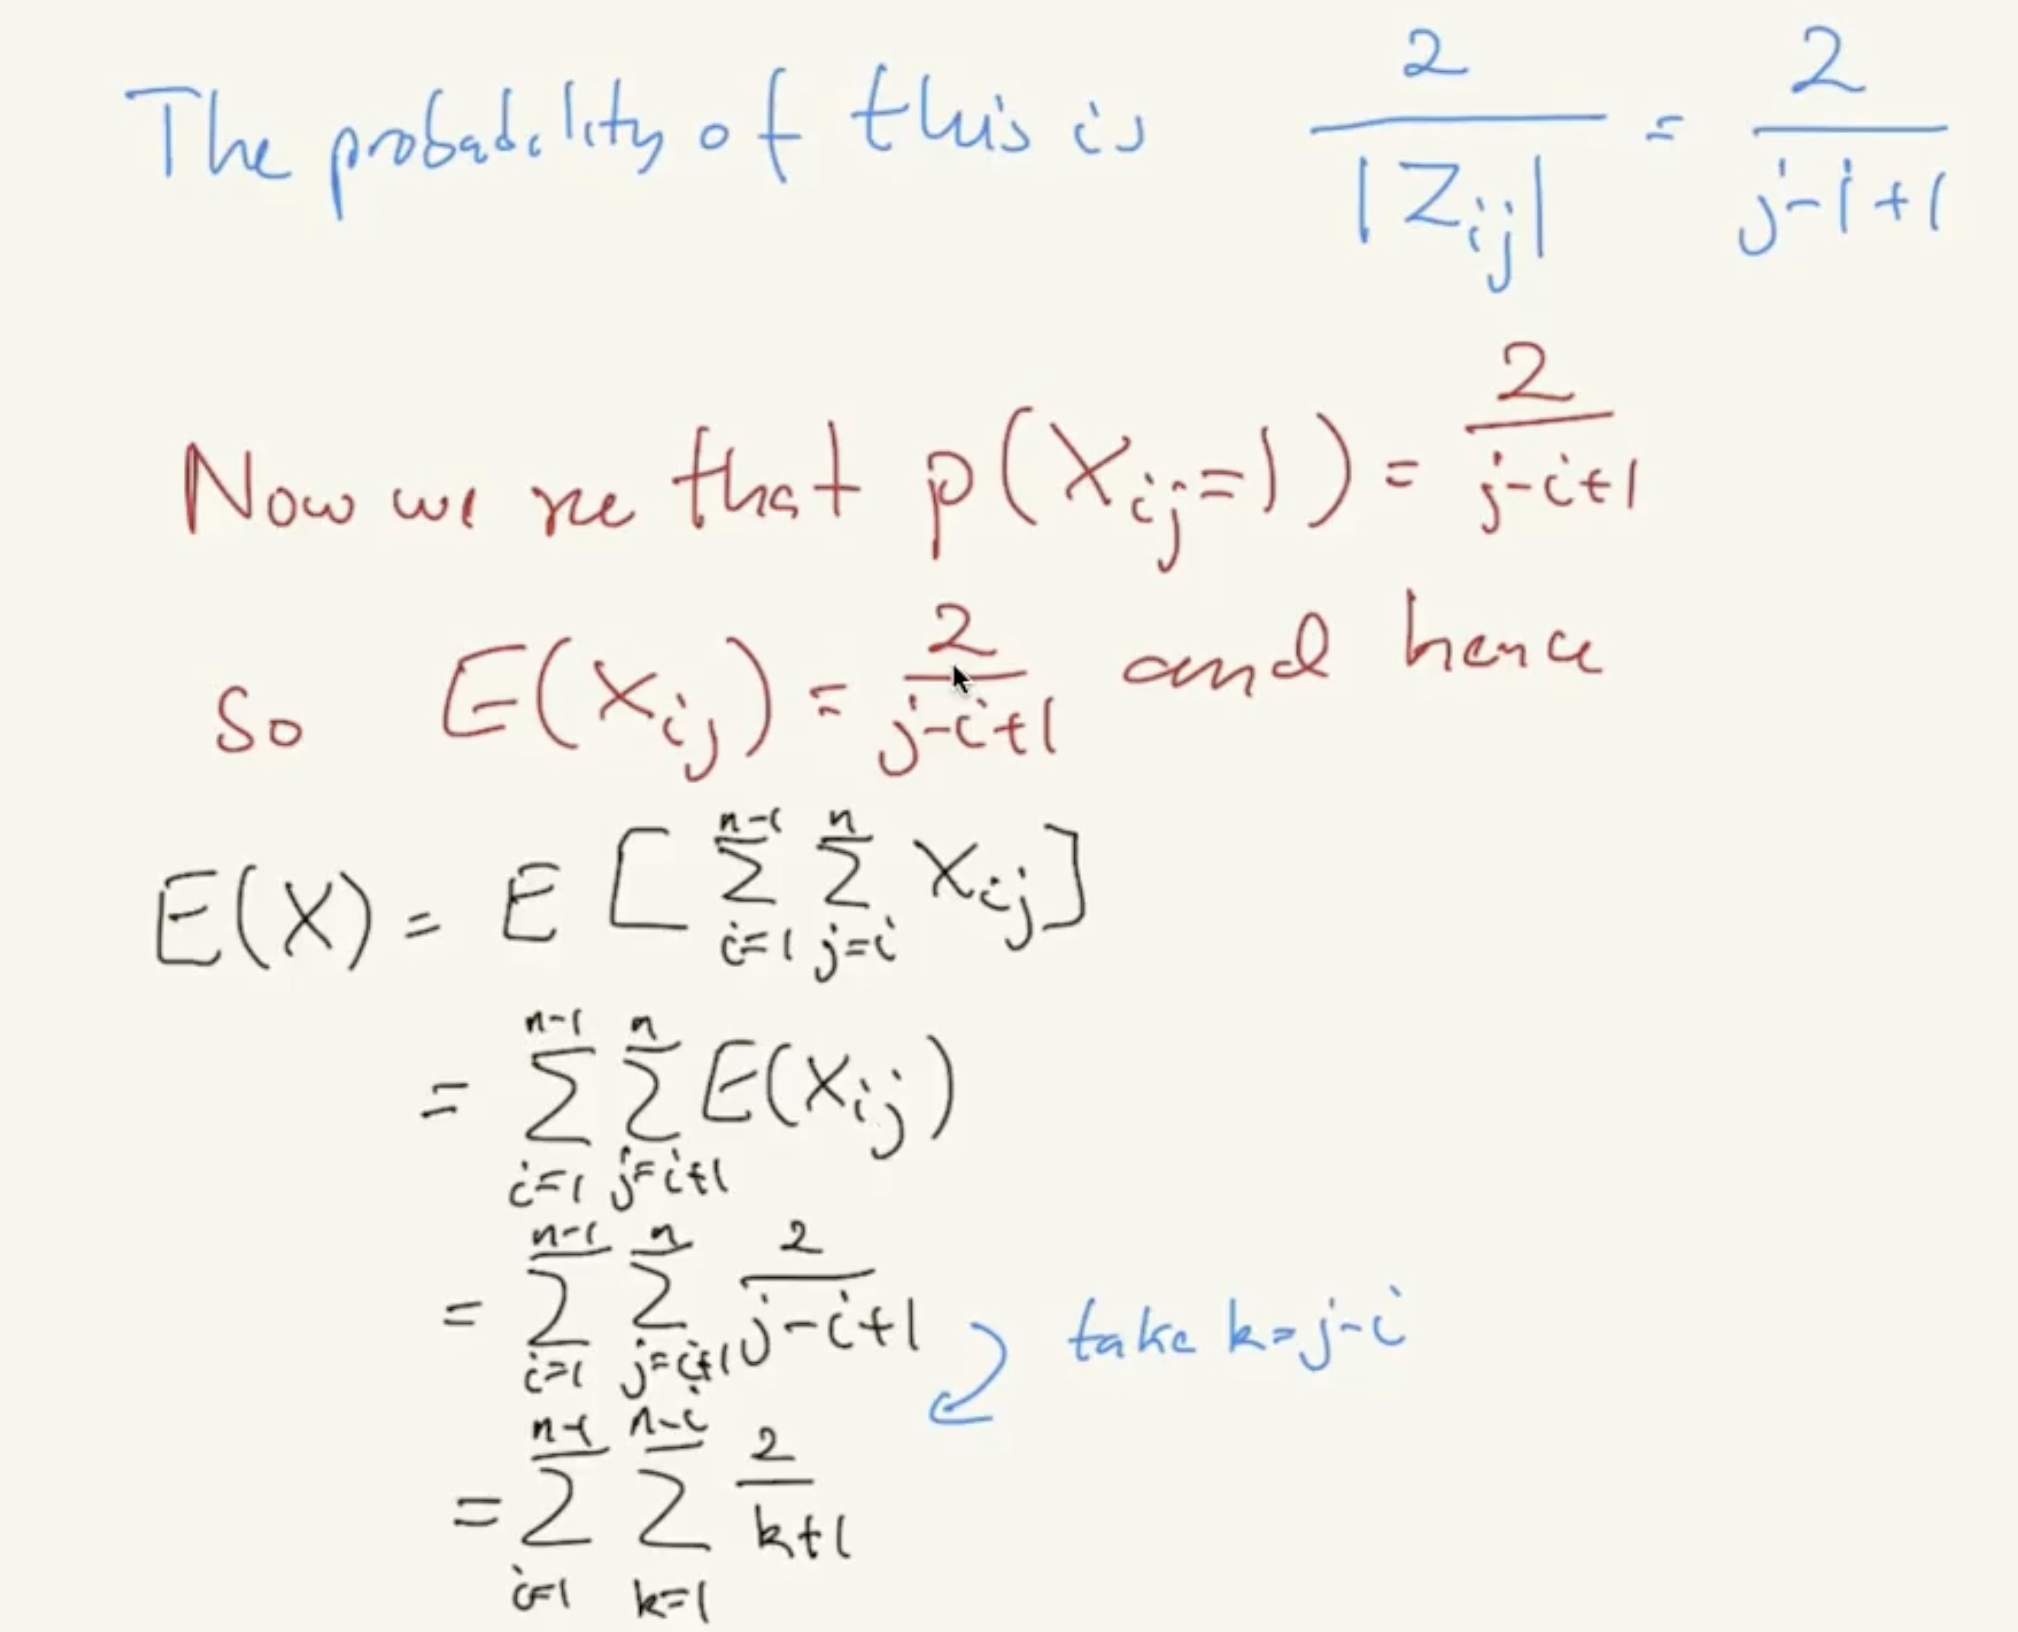 The probability of this is 2/|Z_ij| = 2/(j-i+1)
Now we see that p(X_ij=1) = 2/(j-i+1)
So E(X_ij) = 2/(j-i+1) and hence
E(X) = E [ ∑_{i=1}^{n-1} ∑_{j=i}^{n} X_ij ]
= ∑_{i=1}^{n-1} ∑_{j=i+1}^{n} E(X_ij)
= ∑_{i=1}^{n-1} ∑_{j=i+1}^{n} 2/(j-i+1) take k=j-i
= ∑_{i=1}^{n-1} ∑_{k=1}^{n-i} 2/(k+1)